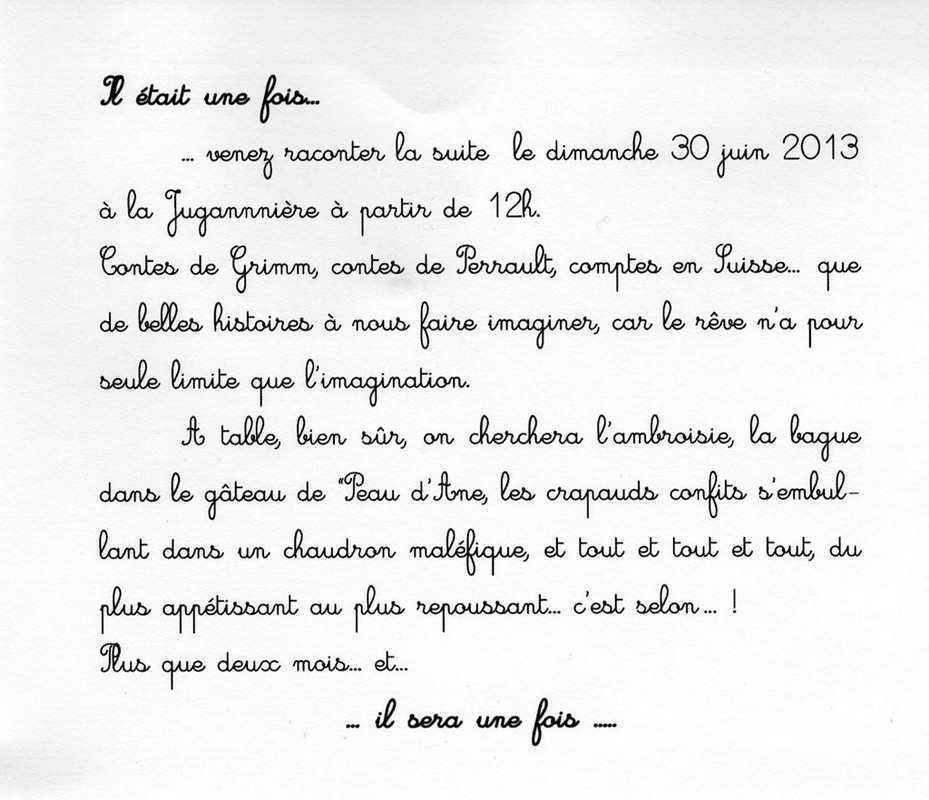 Il était une fois...
... venez raconter la suite le dimanche 30 juin 2013
à la Jugannnière à partir de 12h.
Contes de Grimm, contes de Perrault, comptes en Suisse... que
de belles histoires à nous faire imaginer, car le rêve n'a pour
seule limite que l'imagination.
A table, bien sûr, on cherchera l'ambroisie, la bague
dans le gâteau de "Peau d'Ane, les crapauds confits s'embul-
lant dans un chaudron maléfique, et tout et tout et tout, du
plus appétissant au plus repoussant... c'est selon... !
Plus que deux mois... et...
... il sera une fois .....